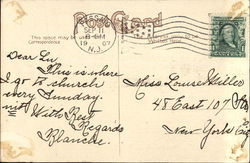 Post Card
SEP 11
8-PM
1907
N.J.
This space may be
Correspondence
Dear Lu,
This is where
I go to church
every Sunday.
With Best
Regards
Blanche.
Miss Louise Miller
48 East 107 St
New York